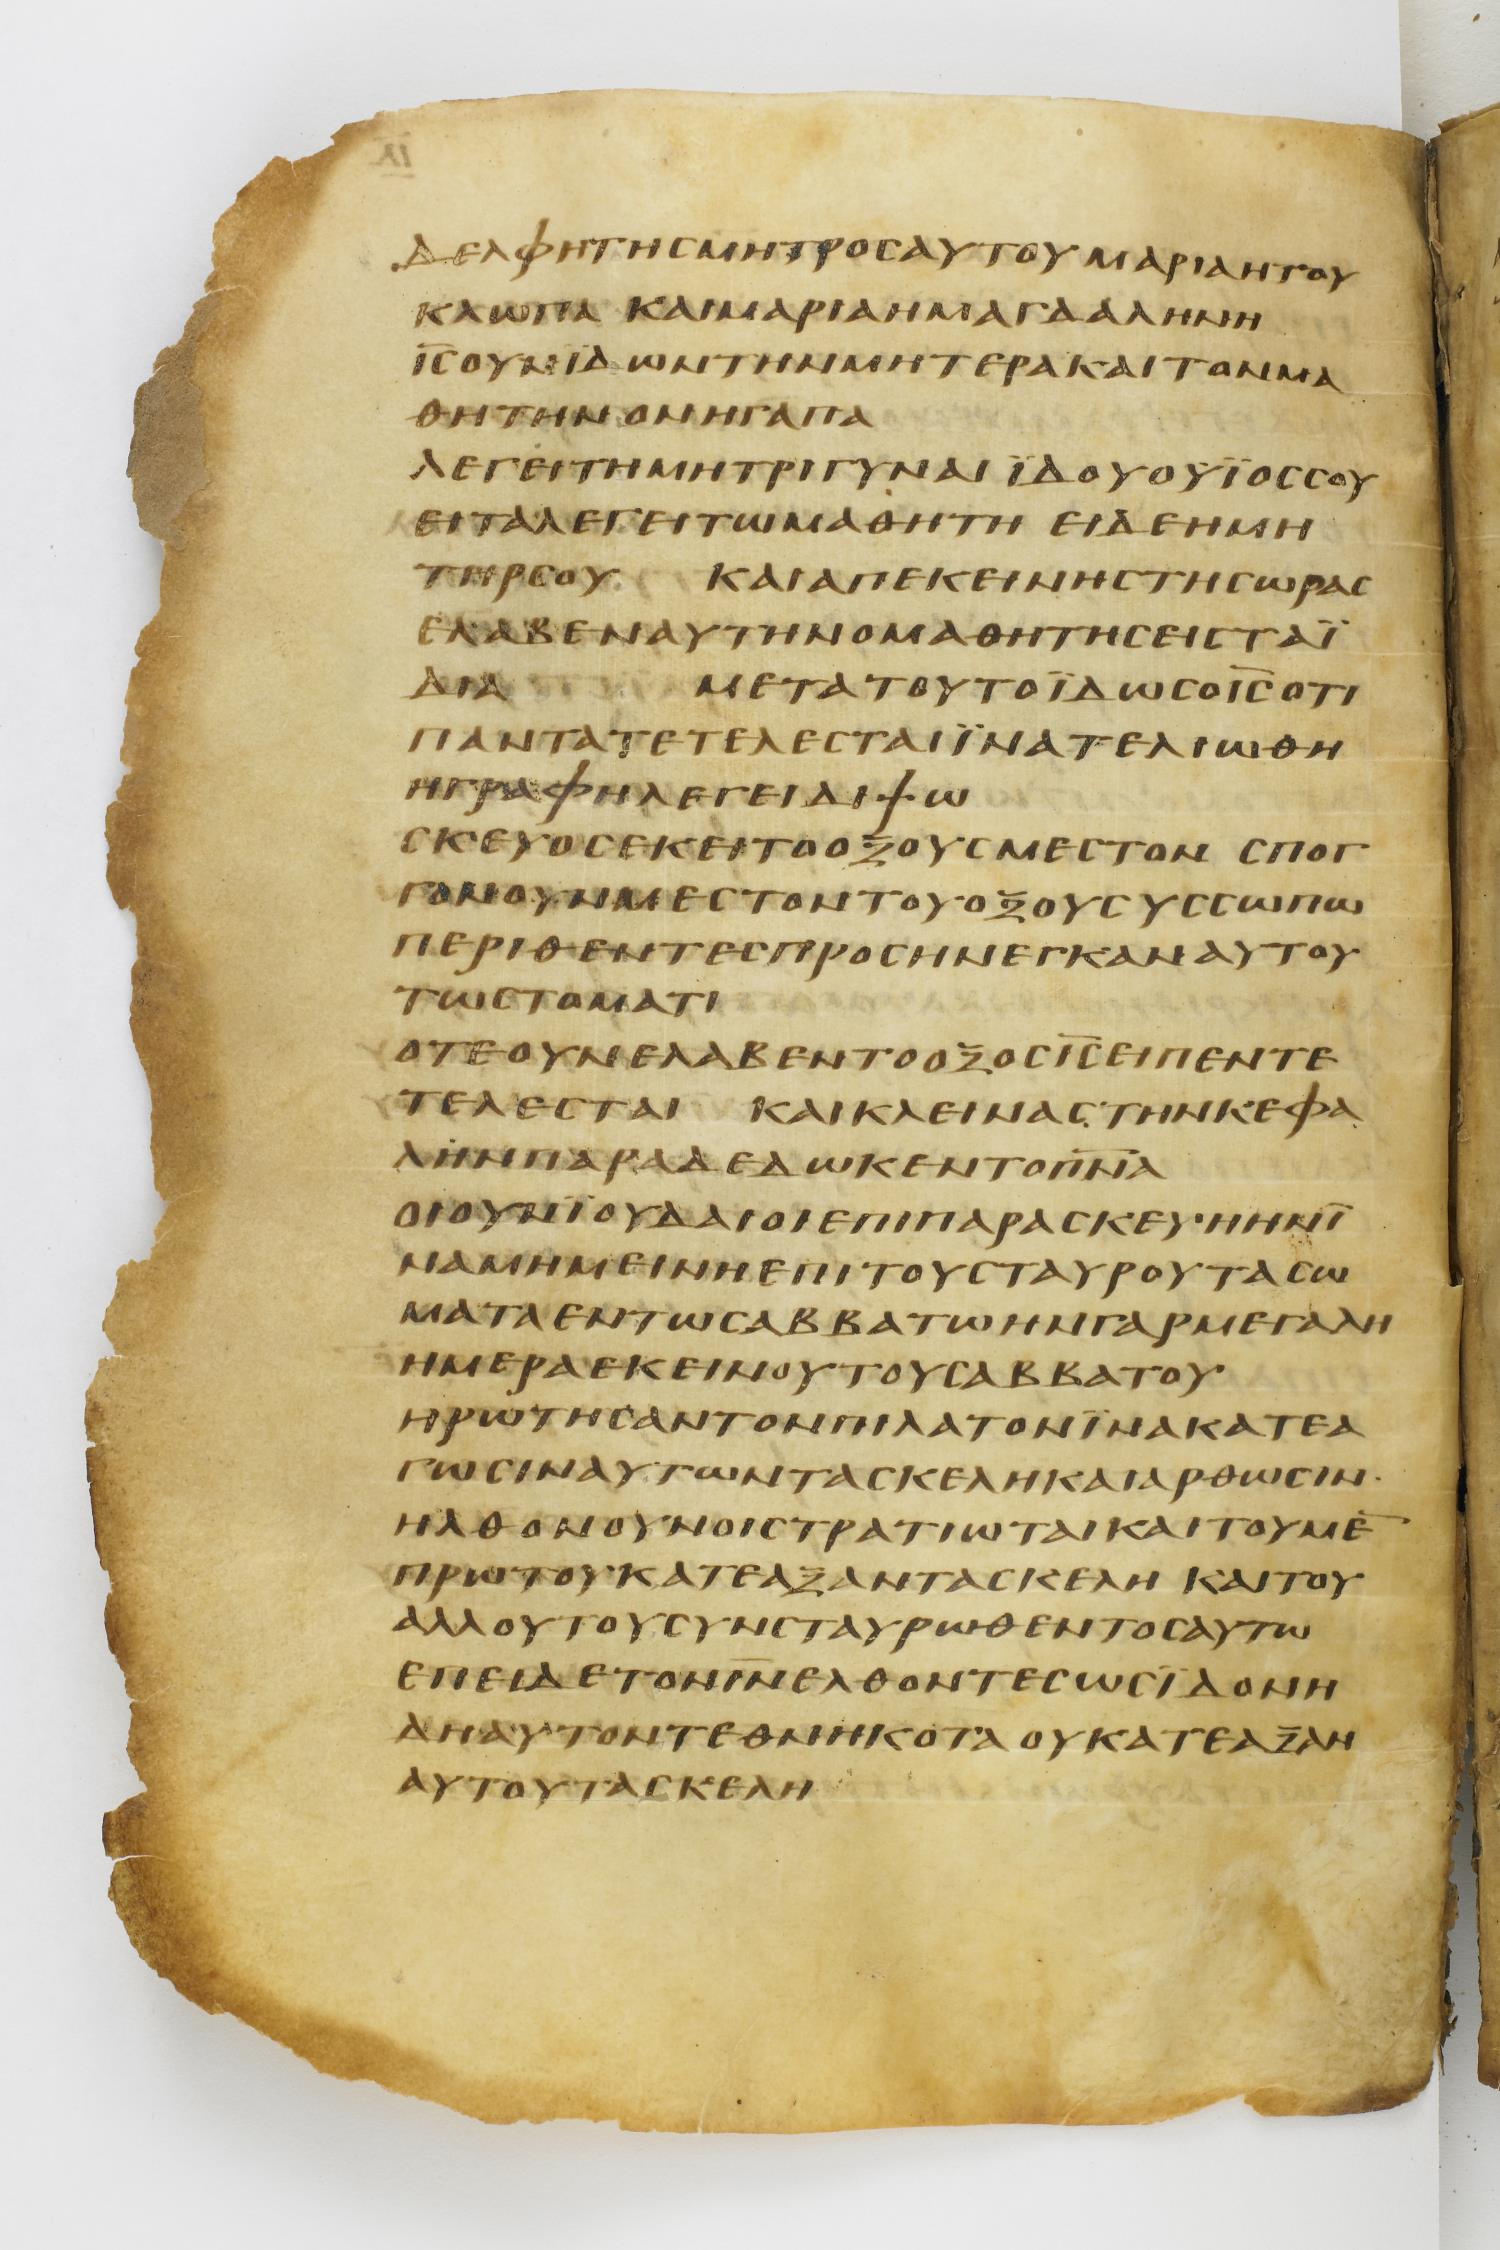 ΔΕΛΦΗΤΗСΜΗΤΡΟСΑΥΤΟΥΜΑΡΙΑΗΤΟΥ
ΚΛΩΠΑ ΚΑΙΜΑΡΙΑΗΜΑΓΔΑΛΗΝΗ
ΙС̅ΟΥΝΪΔΩΝΤΗΝΜΗΤΕΡΑΚΑΙΤΟΝΜΑ
ΘΗΤΗΝΟΝΗΓΑΠΑ
ΛΕΓΕΙΤΗΜΗΤΡΙΓΥΝΑΙ ΪΔΟΥΟΥΪΟССΟΥ
ΕΙΤΑΛΕΓΕΙΤΩΜΑΘΗΤΗ ΕΙΔΕΗΜΗ
ΤΗΡСΟΥ ΚΑΙΑΠΕΚΕΙΝΗСΤΗСΩΡΑС
ΕΛΑΒΕΝΑΥΤΗΝΟΜΑΘΗΤΗСΕΙСΤΑΪ
ΔΙΑ ΜΕΤΑΤΟΥΤΟΪΔΩСΟΙС̅ΟΤΙ
ΠΑΝΤΑΤΕΤΕΛΕСΤΑΙΪΝΑΤΕΛΙΩΘΗ
ΗΓΡΑΦΗΛΕΓΕΙΔΙΨΩ
СΚΕΥΟСΕΚΕΙΤΟΟΞΟΥСΜΕСΤΟΝ СΠΟΓ
ΓΟΝΟΥΝΜΕСΤΟΝΤΟΥΟΞΟΥСΥССΩΠΩ
ΠΕΡΙΘΕΝΤΕСΠΡΟСΗΝΕΓΚΑΝΑΥΤΟΥ
ΤΩСΤΟΜΑΤΙ
ΟΤΕΟΥΝΕΛΑΒΕΝΤΟΟΞΟСΙС̅ΕΙΠΕΝΤΕ
ΤΕΛΕСΤΑΙ ΚΑΙΚΛΕΙΝΑСΤΗΝΚΕΦΑ
ΛΗΝΠΑΡΑΔΕΔΩΚΕΝΤΟΠ̅Ν̅Α
ΟΙΟΥΝΪΟΥΔΑΙΟΙΕΠΙΠΑΡΑСΚΕΥΗΗΝΪ
ΝΑΜΗΜΕΙΝΗΕΠΙΤΟΥСΤΑΥΡΟΥΤΑСΩ
ΜΑΤΑΕΝΤΩСΑΒΒΑΤΩΗΝΓΑΡΜΕΓΑΛΗ
ΗΜΕΡΑΕΚΕΙΝΟΥΤΟΥСΑΒΒΑΤΟΥ
ΗΡΩΤΗСΑΝΤΟΝΠΙΛΑΤΟΝΪΝΑΚΑΤΕΑ
ΓΩСΙΝΑΥΤΩΝΤΑСΚΕΛΗΚΑΙΑΡΘΩСΙΝ·
ΗΛΘΟΝΟΥΝΟΙСΤΡΑΤΙΩΤΑΙΚΑΙΤΟΥΜΕ̅
ΠΡΩΤΟΥΚΑΤΕΑΞΑΝΤΑСΚΕΛΗ ΚΑΙΤΟΥ
ΑΛΛΟΥΤΟΥСΥΝСΤΑΥΡΩΘΕΝΤΟСΑΥΤΩ
ΕΠΕΙΔΕΤΟΝΙΝ̅ΕΛΘΟΝΤΕСΩСΪΔΟΝΗ
ΔΗΑΥΤΟΝΤΕΘΝΗΚΟΤΑ ΟΥΚΑΤΕΑΞΑΝ
ΑΥΤΟΥΤΑСΚΕΛΗ